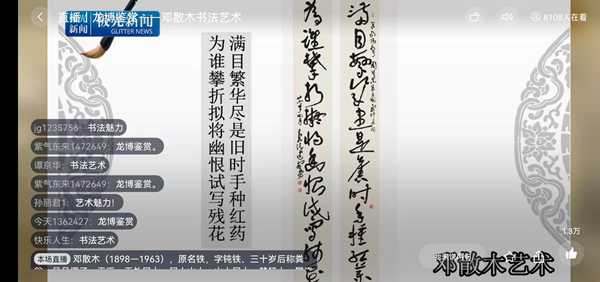 直播 | 龙博鉴赏——邓散木书法艺术
8108人在看
新闻
极光新闻
GLITTER NEWS
满目繁华尽是旧时手种红药
为谁攀折拟将幽恨试写残花
满目繁华尽是旧时手种红药
为谁攀折拟将幽恨试写残花
jg1235756：书法魅力
紫气东来1472649：龙博鉴赏。
谭京华：书法艺术
紫气东来1472649：龙博鉴赏。
孙丽君1：艺术魅力！
今天1362427：龙博鉴赏
快乐人生：书法艺术
1.3万
本场直播 邓散木（1898—1963），原名铁，字钝铁、三十岁后称粪
邓散木艺术